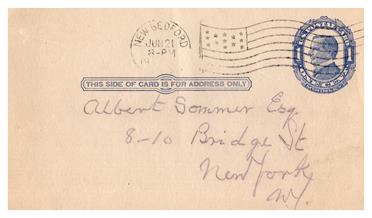 NEW BEDFORD
JUN 21
8-PM
THIS SIDE OF CARD IS FOR ADDRESS ONLY
Albert Sommer Esq.
8-10 Bridge St
New York
N.Y.